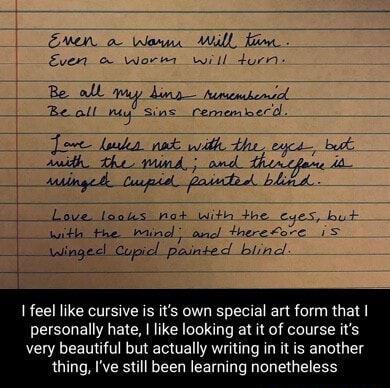 Even a worm will turn.
Even a worm will turn.
Be all my sins remembered
Be all my sins remember'd.
Love looks not with the eyes, but
with the mind; and therefore is
winged cupid painted blind.
Love looks not with the eyes, but
with the mind; and therefore is
winged cupid painted blind.
I feel like cursive is it's own special art form that I
personally hate, I like looking at it of course it's
very beautiful but actually writing in it is another
thing, I've still been learning nonetheless